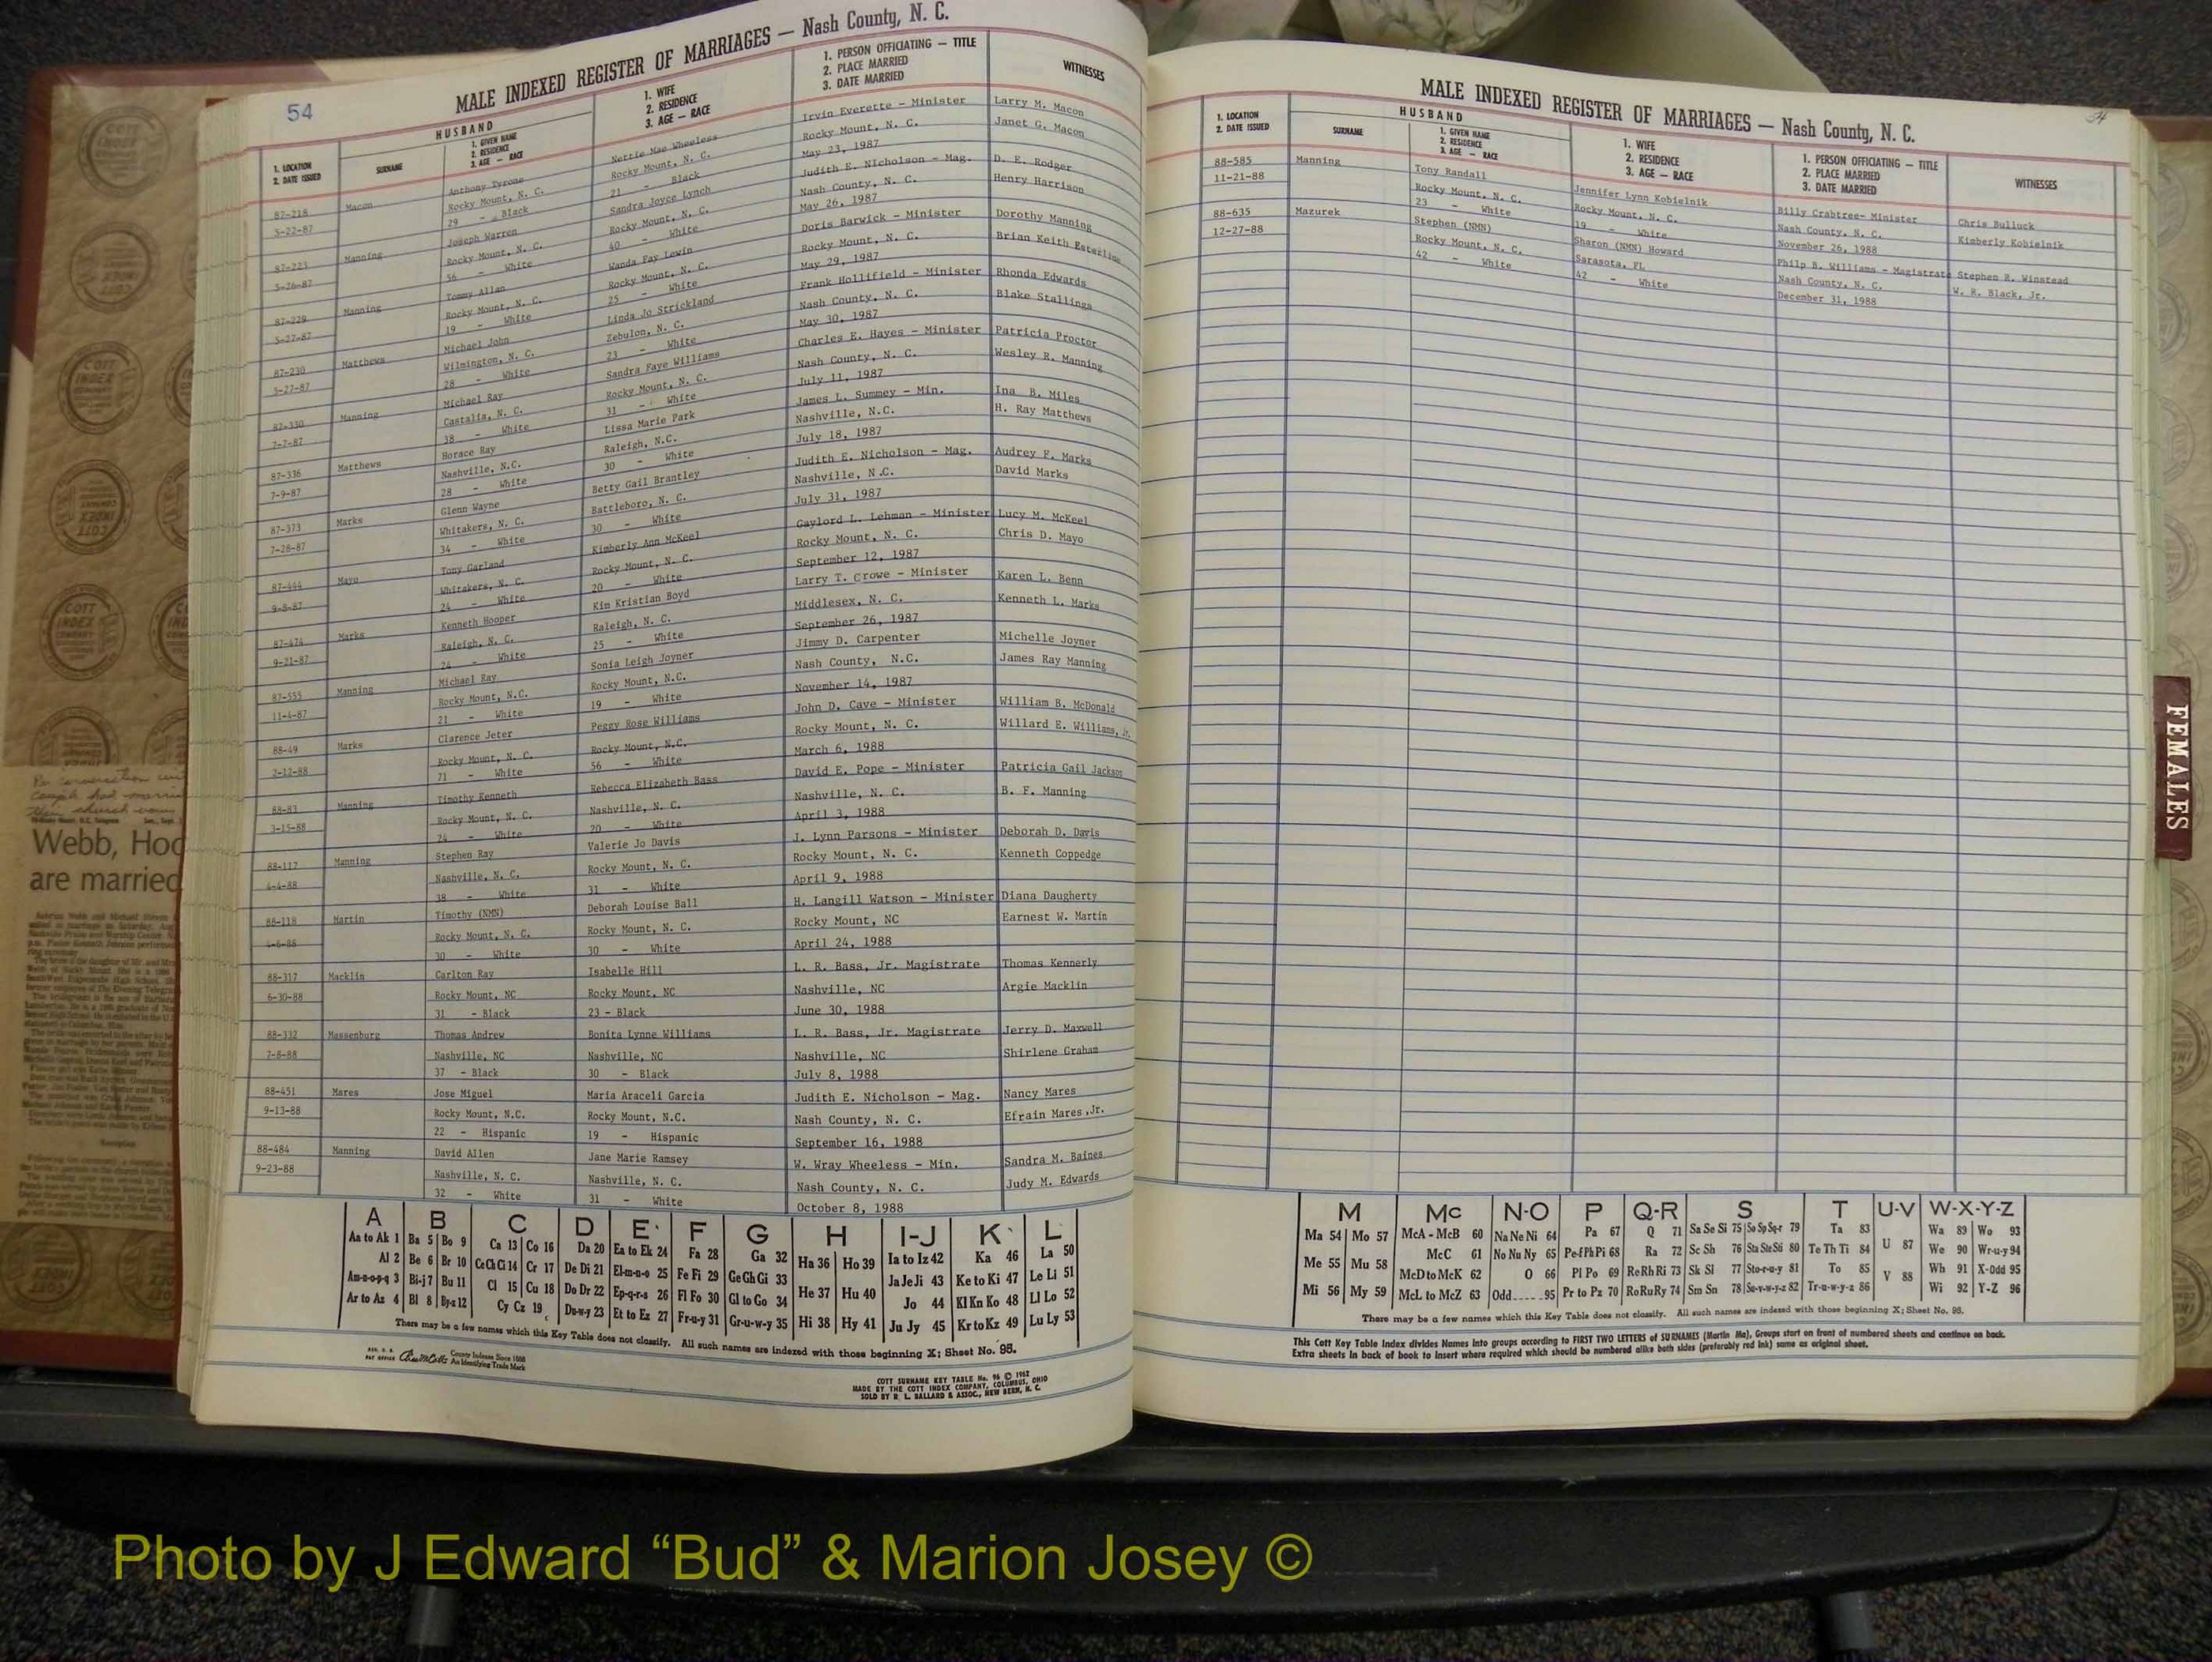 54
MALE INDEXED REGISTER OF MARRIAGES — Nash County, N. C.
1. LOCATION
2. DATE ISSUED
HUSBAND
SURNAME
1. GIVEN NAME
2. RESIDENCE
3. AGE — RACE
1. WIFE
2. RESIDENCE
3. AGE — RACE
1. PERSON OFFICIATING — TITLE
2. PLACE MARRIED
3. DATE MARRIED
WITNESSES
87-218 Macon Anthony Tyrone Nettie Mae Wheeless Irvin Everette - Minister Larry M. Macon
5-22-87 Rocky Mount, N. C. Rocky Mount, N. C. Rocky Mount, N. C. Janet G. Macon
29 - Black 21 - Black May 23, 1987
87-223 Manning Joseph Warren Sandra Joyce Lynch Judith E. Nicholson - Mag. D. E. Rodger
5-26-87 Rocky Mount, N. C. Rocky Mount, N. C. Nash County, N. C. Henry Harrison
56 - White 40 - White May 26, 1987
87-229 Manning Tommy Allan Wanda Fay Lewin Doris Barwick - Minister Dorothy Manning
5-27-87 Rocky Mount, N. C. Rocky Mount, N. C. Rocky Mount, N. C. Brian Keith
19 - White 25 - White May 29, 1987
87-230 Matthews Michael John Linda Jo Strickland Frank Hollifield - Minister Rhonda Edwards
5-27-87 Wilmington, N. C. Zebulon, N. C. Nash County, N. C. Blake Stallings
28 - White 23 - White May 30, 1987
87-330 Manning Michael Ray Sandra Faye Williams Charles E. Hayes - Minister Patricia Proctor
7-7-87 Castalia, N. C. Rocky Mount, N. C. Nash County, N. C. Wesley R. Manning
38 - White 31 - White July 11, 1987
87-336 Matthews Horace Ray Lissa Marie Park James L. Summey - Min. Ina B. Miles
7-9-87 Nashville, N.C. Raleigh, N.C. Nashville, N.C. H. Ray Matthews
28 - White 30 - White July 18, 1987
87-373 Marks Glenn Wayne Betty Gail Brantley Judith E. Nicholson - Mag. Audrey F. Marks
7-28-87 Whitakers, N. C. Battleboro, N. C. Nashville, N.C. David Marks
34 - White 30 - White July 31, 1987
87-444 Mayo Tony Garland Kimberly Ann McKeel Gaylord L. Lehman - Minister Lucy M. McKeel
9-8-87 Whitakers, N. C. Rocky Mount, N. C. Rocky Mount, N. C. Chris D. Mayo
24 - White 20 - White September 12, 1987
87-474 Marks Kenneth Hooper Kim Kristian Boyd Larry T. Crowe - Minister Karen L. Benn
9-21-87 Raleigh, N. C. Raleigh, N. C. Middlesex, N. C. Kenneth L. Marks
24 - White 25 - White September 26, 1987
87-555 Manning Michael Ray Sonia Leigh Joyner Jimmy D. Carpenter Michelle Joyner
11-4-87 Rocky Mount, N.C. Rocky Mount, N.C. Nash County, N.C. James Ray Manning
21 - White 19 - White November 14, 1987
88-49 Marks Clarence Jeter Peggy Rose Williams John D. Cave - Minister William B. McDonald
2-12-88 Rocky Mount, N. C. Rocky Mount, N.C. Rocky Mount, N. C. Willard E. Williams, Jr.
71 - White 56 - White March 6, 1988
88-83 Manning Timothy Kenneth Rebecca Elizabeth Bass David E. Pope - Minister Patricia Gail Jackson
3-15-88 Rocky Mount, N. C. Nashville, N. C. Nashville, N. C. B. F. Manning
24 - White 20 - White April 3, 1988
88-117 Manning Stephen Ray Valerie Jo Davis J. Lynn Parsons - Minister Deborah D. Davis
4-4-88 Nashville, N. C. Rocky Mount, N. C. Rocky Mount, N. C. Kenneth Coppedge
38 - White 31 - White April 9, 1988
88-118 Martin Timothy (NMN) Deborah Louise Ball H. Langill Watson - Minister Diana Daugherty
4-6-88 Rocky Mount, N. C. Rocky Mount, N. C. Rocky Mount, NC Earnest W. Martin
30 - White 30 - White April 24, 1988
88-317 Macklin Carlton Ray Isabelle Hill L. R. Bass, Jr. Magistrate Thomas Kennerly
6-30-88 Rocky Mount, NC Rocky Mount, NC Nashville, NC Argie Macklin
31 - Black 23 - Black June 30, 1988
88-332 Massenburg Thomas Andrew Bonita Lynne Williams L. R. Bass, Jr. Magistrate Jerry D. Maxwell
7-8-88 Nashville, NC Nashville, NC Nashville, NC Shirlene Graham
37 - Black 30 - Black July 8, 1988
88-451 Mares Jose Miguel Maria Araceli Garcia Judith E. Nicholson - Mag. Nancy Mares
9-13-88 Rocky Mount, N.C. Rocky Mount, N.C. Nash County, N. C. Efrain Mares, Jr.
22 - Hispanic 19 - Hispanic September 16, 1988
88-484 Manning David Allen Jane Marie Ramsey W. Wray Wheeless - Min. Sandra M. Baines
9-23-88 Nashville, N. C. Nashville, N. C. Nash County, N. C. Judy M. Edwards
32 - White 31 - White October 8, 1988
A B C D E F G H I-J K L
Aa to Ak 1 Ba 5 Bo 9 Ca 13 Co 16 Da 20 Ea to Ek 24 Fa 28 Ga 32 Ha 36 Ho 39 Ia to Iz 42 Ka 46 La 50
Al 2 Be 6 Br 10 Ce Ch Ci 14 Cr 17 De Di 21 El-m-n-o 25 Fe Fi 29 Ge Gh Gi 33 Ja Je Ji 43 Ke to Ki 47 Le Li 51
Am-n-o-p-q 3 Bi-j 7 Bu 11 Cl 15 Cu 18 Do Dr 22 Ep-q-r-s 26 Fl Fo 30 Gl to Go 34 He 37 Hu 40 Jo 44 Kl Kn Ko 48 Ll Lo 52
Ar to Az 4 Bl 8 By-z 12 Cy Cz 19 Du-w-y 23 Et to Ez 27 Fr-u-y 31 Gr-u-w-y 35 Hi 38 Hy 41 Ju Jy 45 Kr to Kz 49 Lu Ly 53
There may be a few names which this Key Table does not classify. All such names are indexed with those beginning X; Sheet No. 95.
County Indexes Since 1888
An Identifying Trade Mark
COTT SURNAME KEY TABLE No. 96 © 1962
MADE BY THE COTT INDEX COMPANY, COLUMBUS, OHIO
SOLD BY R. L. BALLARD & ASSOC., NEW BERN, N. C.
54
MALE INDEXED REGISTER OF MARRIAGES — Nash County, N. C.
1. LOCATION
2. DATE ISSUED
HUSBAND
SURNAME
1. GIVEN NAME
2. RESIDENCE
3. AGE — RACE
1. WIFE
2. RESIDENCE
3. AGE — RACE
1. PERSON OFFICIATING — TITLE
2. PLACE MARRIED
3. DATE MARRIED
WITNESSES
88-585 Manning Tony Randall Jennifer Lynn Kobielnik Billy Crabtree- Minister Chris Bulluck
11-21-88 Rocky Mount, N. C. Rocky Mount, N. C. Nash County, N. C. Kimberly Kobielnik
23 - White 19 - White November 26, 1988
88-635 Mazurek Stephen (NMN) Sharon (NMN) Howard Philp B. Williams - Magistrate Stephen R. Winstead
12-27-88 Rocky Mount, N. C. Sarasota, FL Nash County, N. C. W. R. Black, Jr.
42 - White 42 - White December 31, 1988
M Mc N-O P Q-R S T U-V W-X-Y-Z
Ma 54 Mo 57 McA - McB 60 Na Ne Ni 64 Pa 67 Q 71 Sa Se Si 75 So Sp Sq-r 79 Ta 83 U 87 Wa 89 Wo 93
Me 55 Mu 58 McC 61 No Nu Ny 65 Pe-f Ph Pi 68 Ra 72 Sc Sh 76 Sta Ste Sti 80 Te Th Ti 84 We 90 Wr-u-y 94
McD to McK 62 O 66 Pl Po 69 Re Rh Ri 73 Sk Sl 77 Sto-r-u-y 81 To 85 V 88 Wh 91 X-Odd 95
Mi 56 My 59 McL to McZ 63 Odd 95 Pr to Pz 70 Ro Ru Ry 74 Sm Sn 78 Su-v-w-y-z 82 Tr-u-w-y-z 86 Wi 92 Y-Z 96
There may be a few names which this Key Table does not classify. All such names are indexed with those beginning X; Sheet No. 95.
This Cott Key Table Index divides Names into groups according to FIRST TWO LETTERS of SURNAMES (Martin Ma), Groups start on front of numbered sheets and continue on back.
Extra sheets in back of book to insert where required which should be numbered alike both sides (preferably red ink) same as original sheet.
FEMALES
COTT
INDEX
COMPANY
Webb, Hoo
are married
Photo by J Edward “Bud” & Marion Josey ©